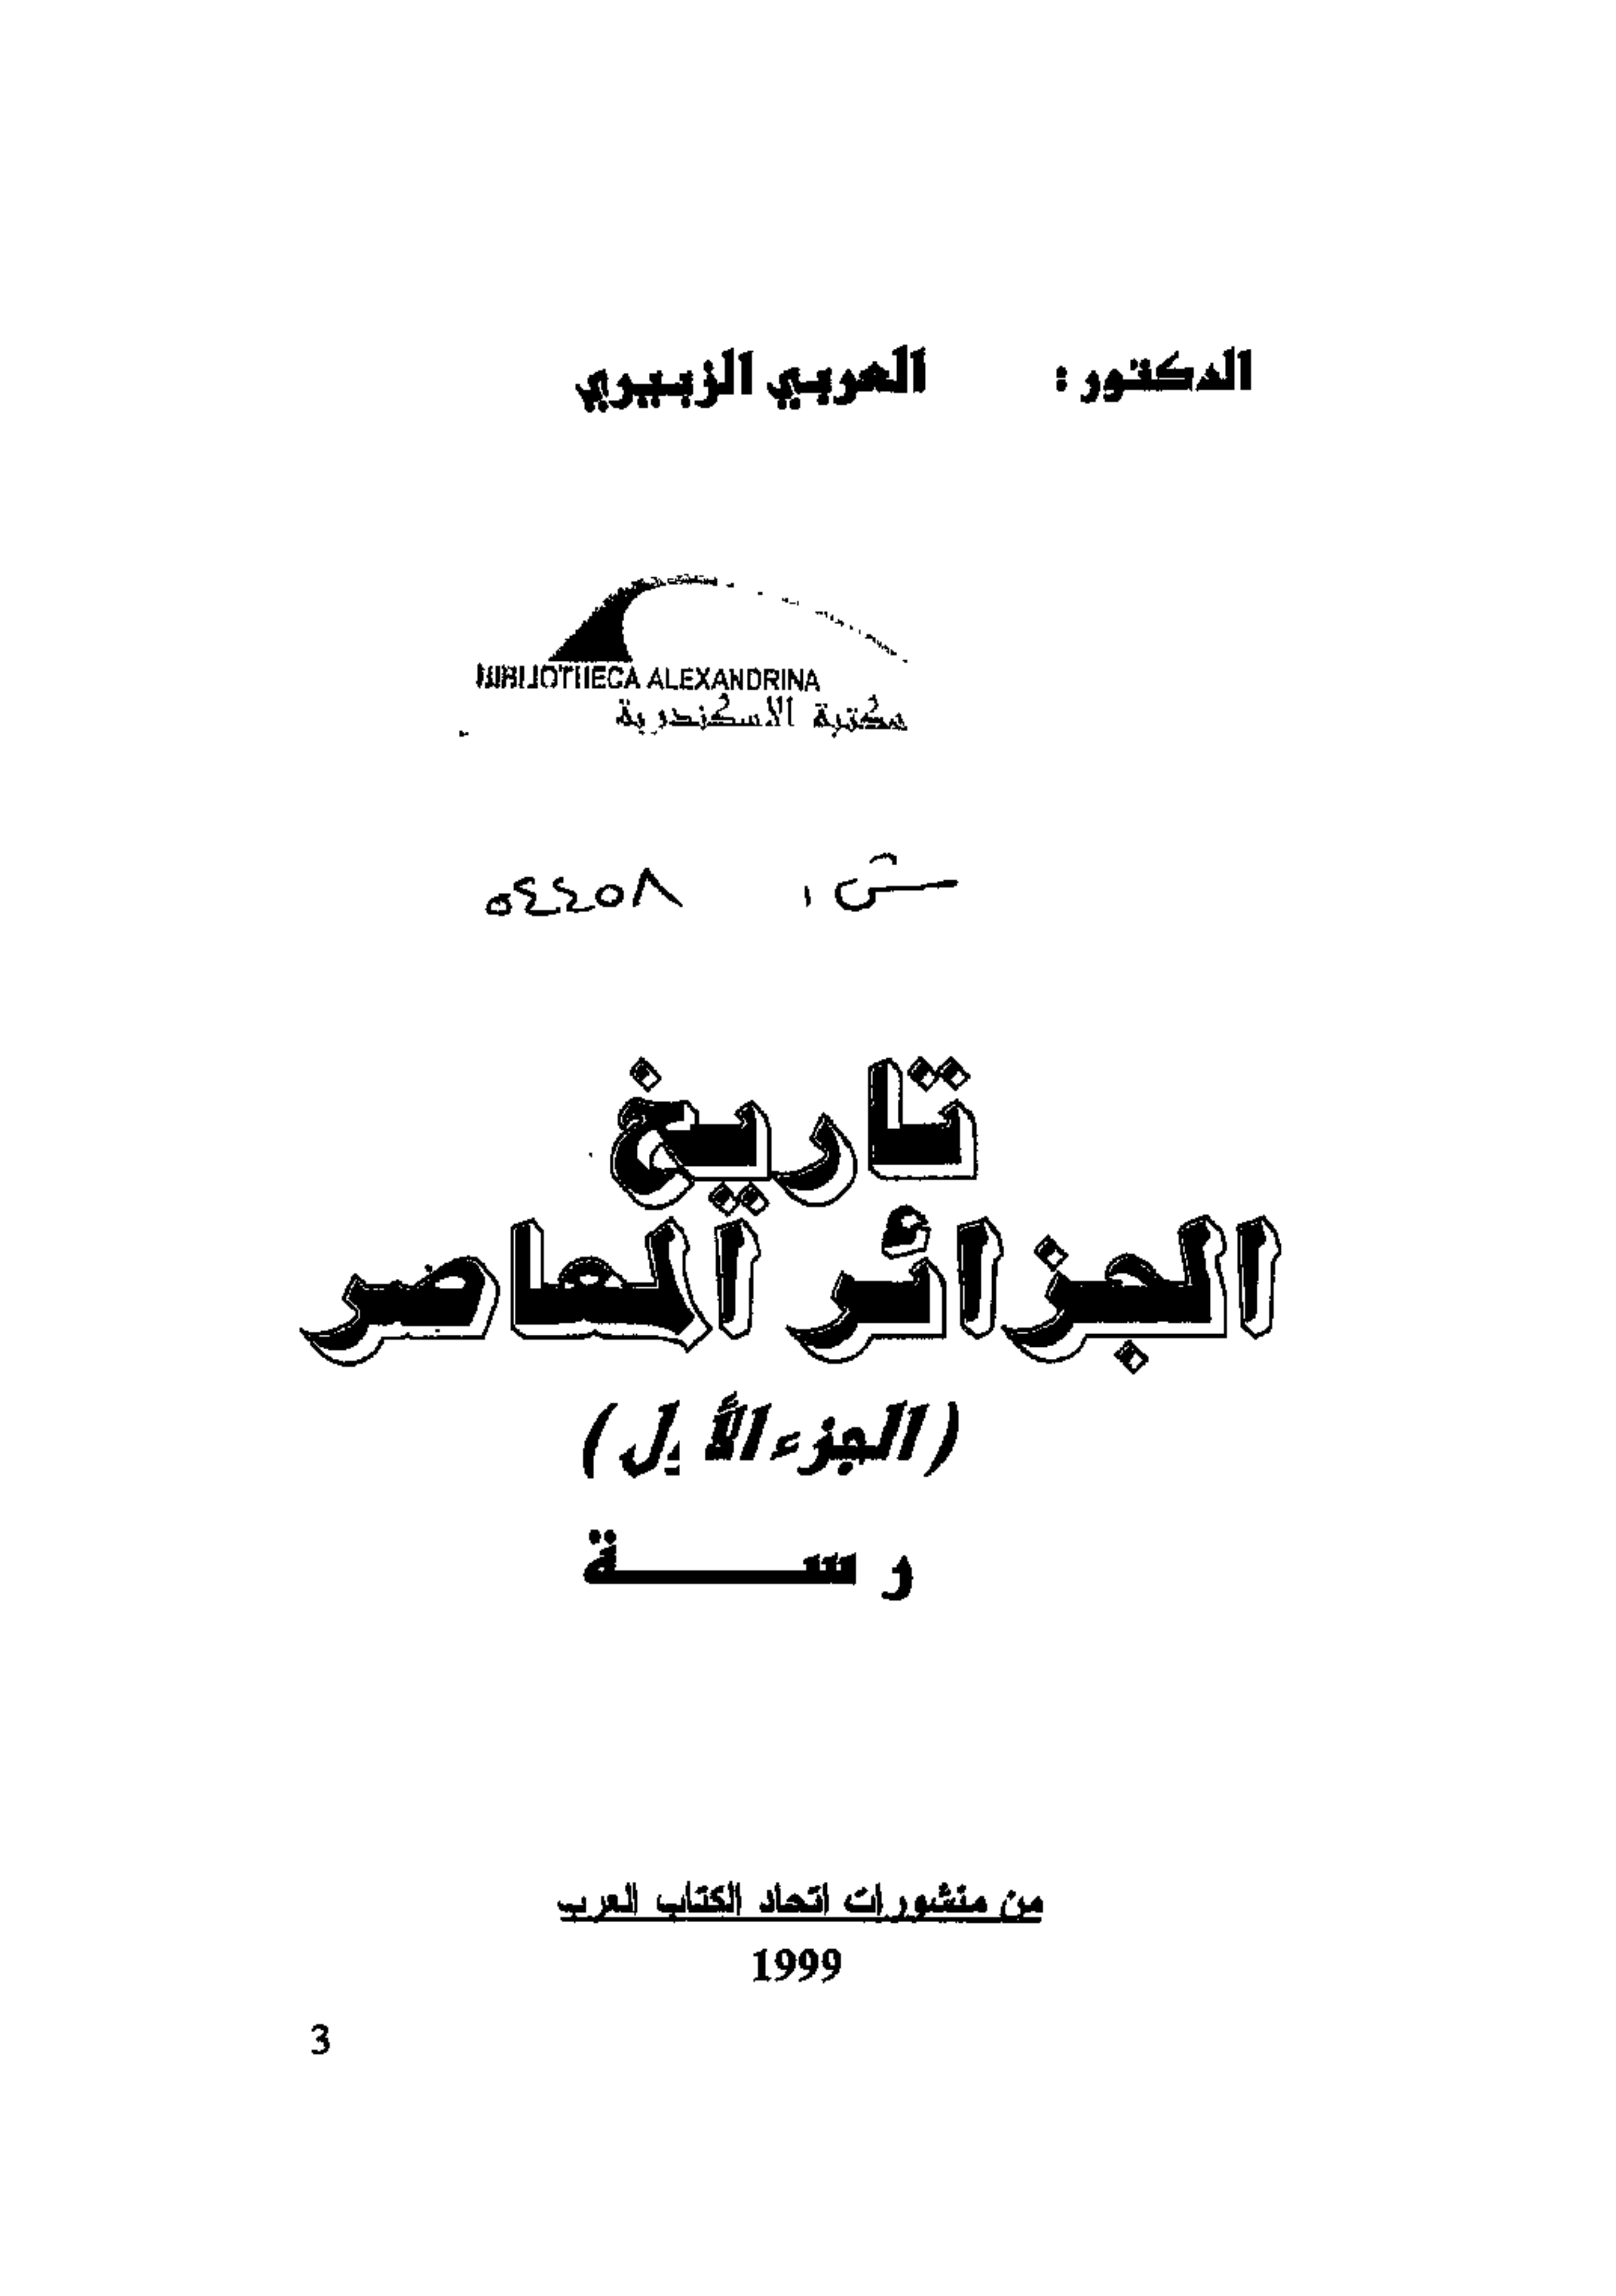 الدكتور : العربي الزبيري
BIBLIOTHECA ALEXANDRINA
مكتبة الاسكندرية
٥٤٤٥٨
تاريخ
الجزائر المعاصر
(الجزء الأول)
رســـــــة
من منشورات اتحاد الكتاب العرب
1999
3